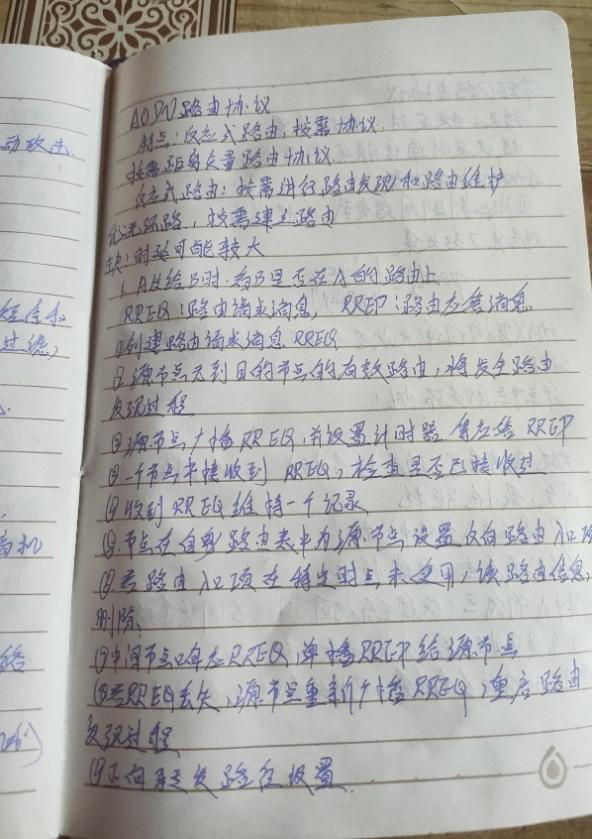 动攻击.
过滤,
AODV路由协议
特点:反应式路由,按需协议.
按需距离矢量路由协议.
反应式路由:按需进行路由发现和路由维护
优:无环路,按需建立路由
缺:时延可能较大
1. A发给B时.看B是否在A的路由上
RREQ:路由请求消息, RREP:路由应答消息
①创建路由请求消息RREQ
②源节点无到目的节点的有效路由,将发全路由
发现过程
③源节点广播RREQ,并设置计时器 等应答 RREP
一个节点中接收到 RREQ,检查是否已接收过
收到RREQ维持一个记录
节点在自身路由表中为源节点设置反向路由入口项
若路由入口项在特定时点未使用,该路由信息,
删除.
⑦中间节点响应RREQ,单播RREP给源节点
若RREQ丢失,源节点重新广播RREQ,重启路由
发现过程
正向转发路径设置